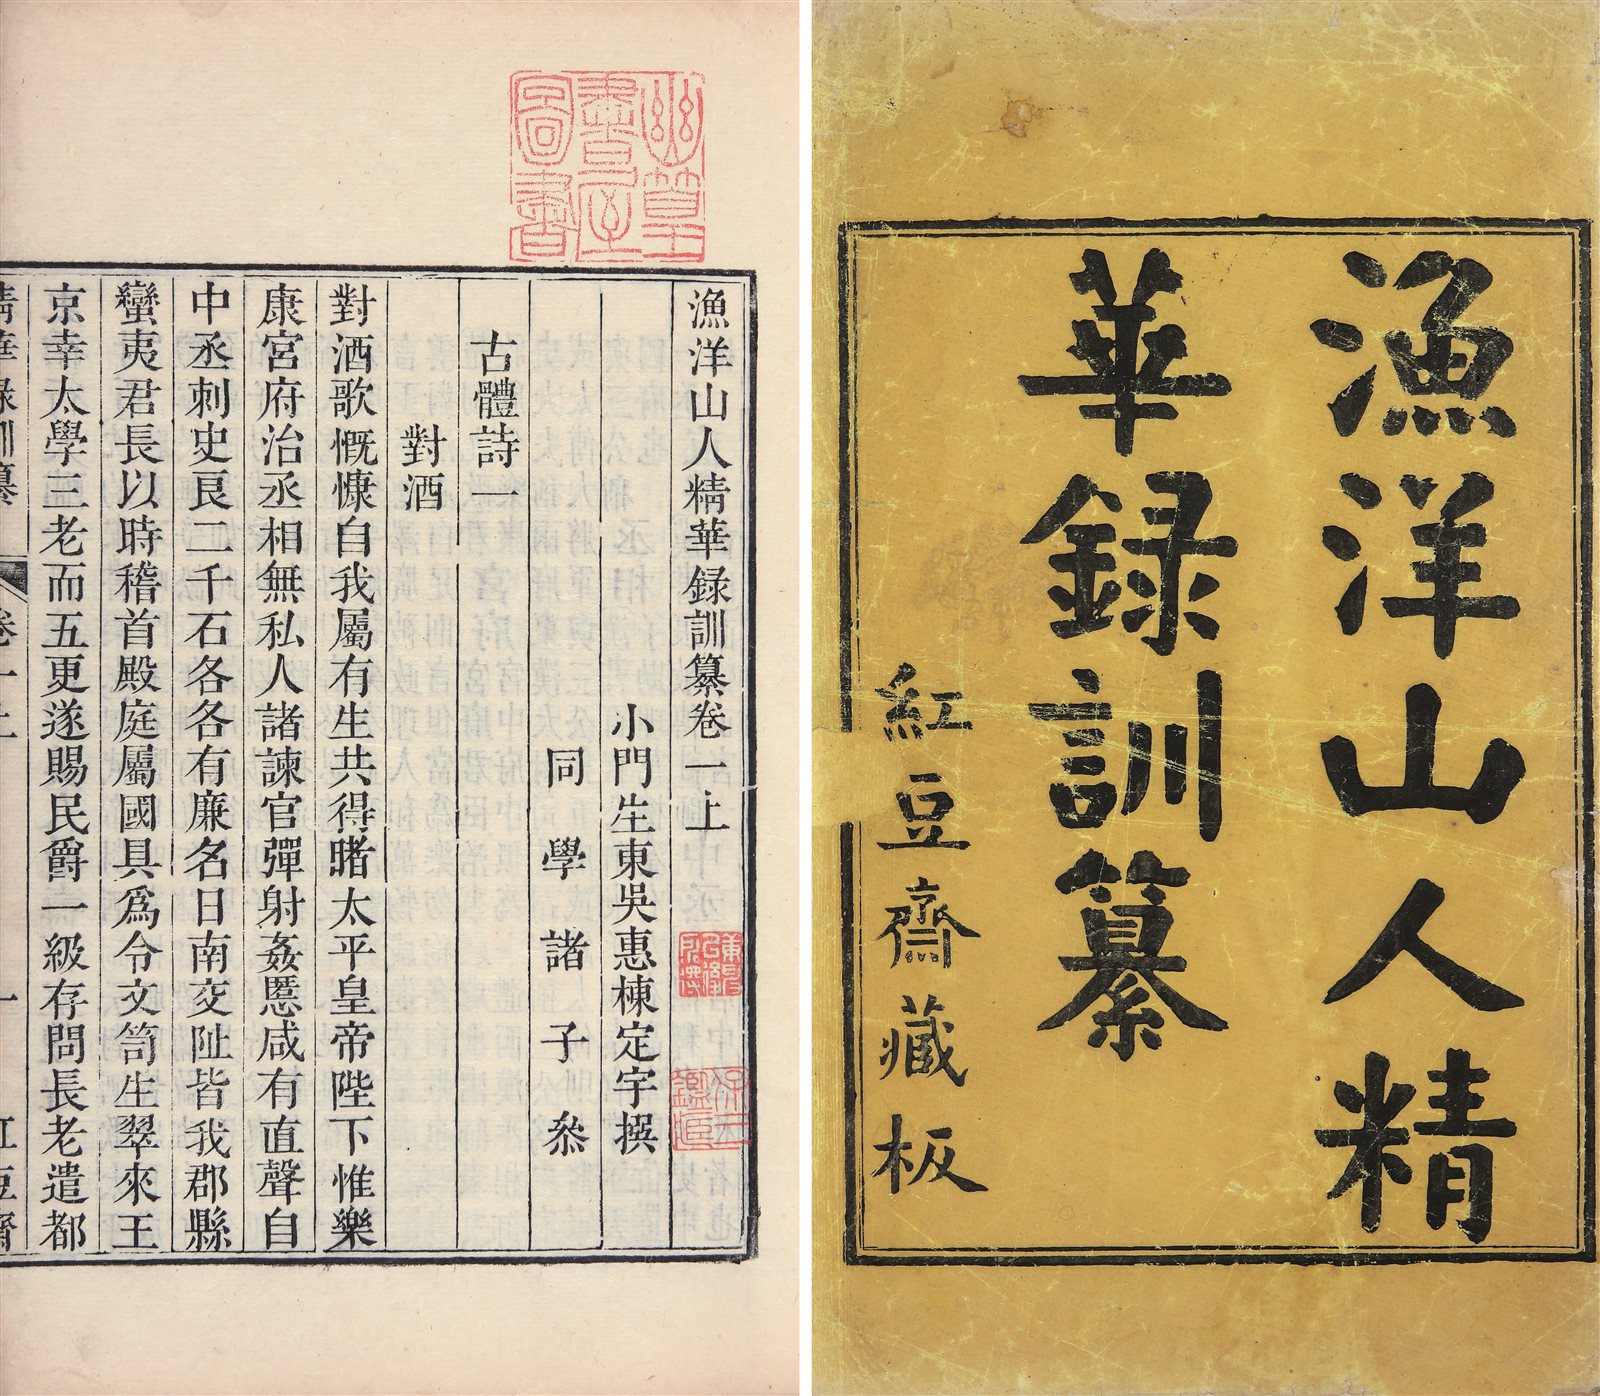 漁洋山人精
華録訓纂
紅豆齋藏板
漁洋山人精華録訓纂卷一上
小門生東吳惠棟定宇撰
同學諸子叅
古體詩一
對酒
對酒歌慨慷自我屬有生共得睹太平皇帝陛下惟樂
康宮府治丞相無私人諸諫官彈射姦慝咸有直聲自
中丞刺史良二千石各各有廉名日南交阯皆我郡縣
蠻夷君長以時稽首殿庭屬國具爲令文笥生翠來王
京幸太學三老而五更遂賜民爵一級存問長老遣都
精華録訓纂
卷一上
一
紅豆齋
圖書